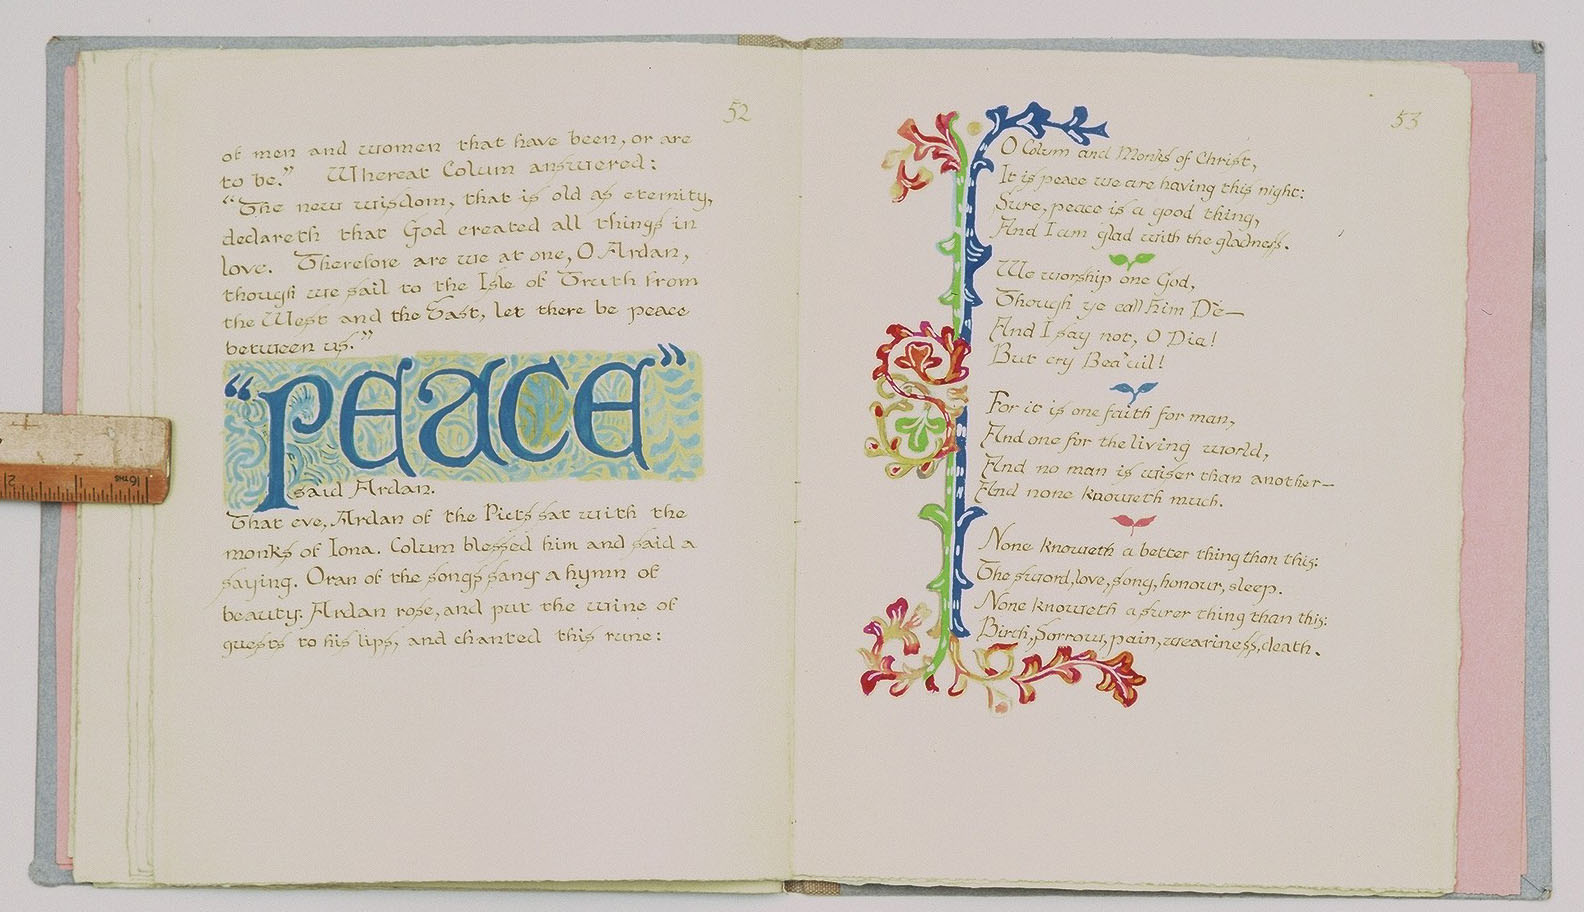 52
of men and women that have been, or are
to be." Whereat Colum answered:
"The new wisdom, that is old as eternity,
declareth that God created all things in
love. Therefore are we at one, O Ardan,
though we sail to the Isle of Truth from
the West and the East, let there be peace
between us."
"PEACE"
said Ardan.
That eve, Ardan of the Picts sat with the
monks of Iona. Colum blessed him and said a
saying. Oran of the songs sang a hymn of
beauty. Ardan rose, and put the wine of
guests to his lips, and chanted this rune:
53
O Colum and Monks of Christ,
It is peace we are having this night:
Sure, peace is a good thing,
And I am glad with the gladness.
We worship one God,
Though ye call him Dè—
And I say not, O Dia!
But cry Bea'uil!
For it is one faith for man,
And one for the living world,
And no man is wiser than another—
And none knoweth much.
None knoweth a better thing than this:
The sword, love, song, honour, sleep.
None knoweth a surer thing than this:
Birth, sorrow, pain, weariness, death.
2
16THS